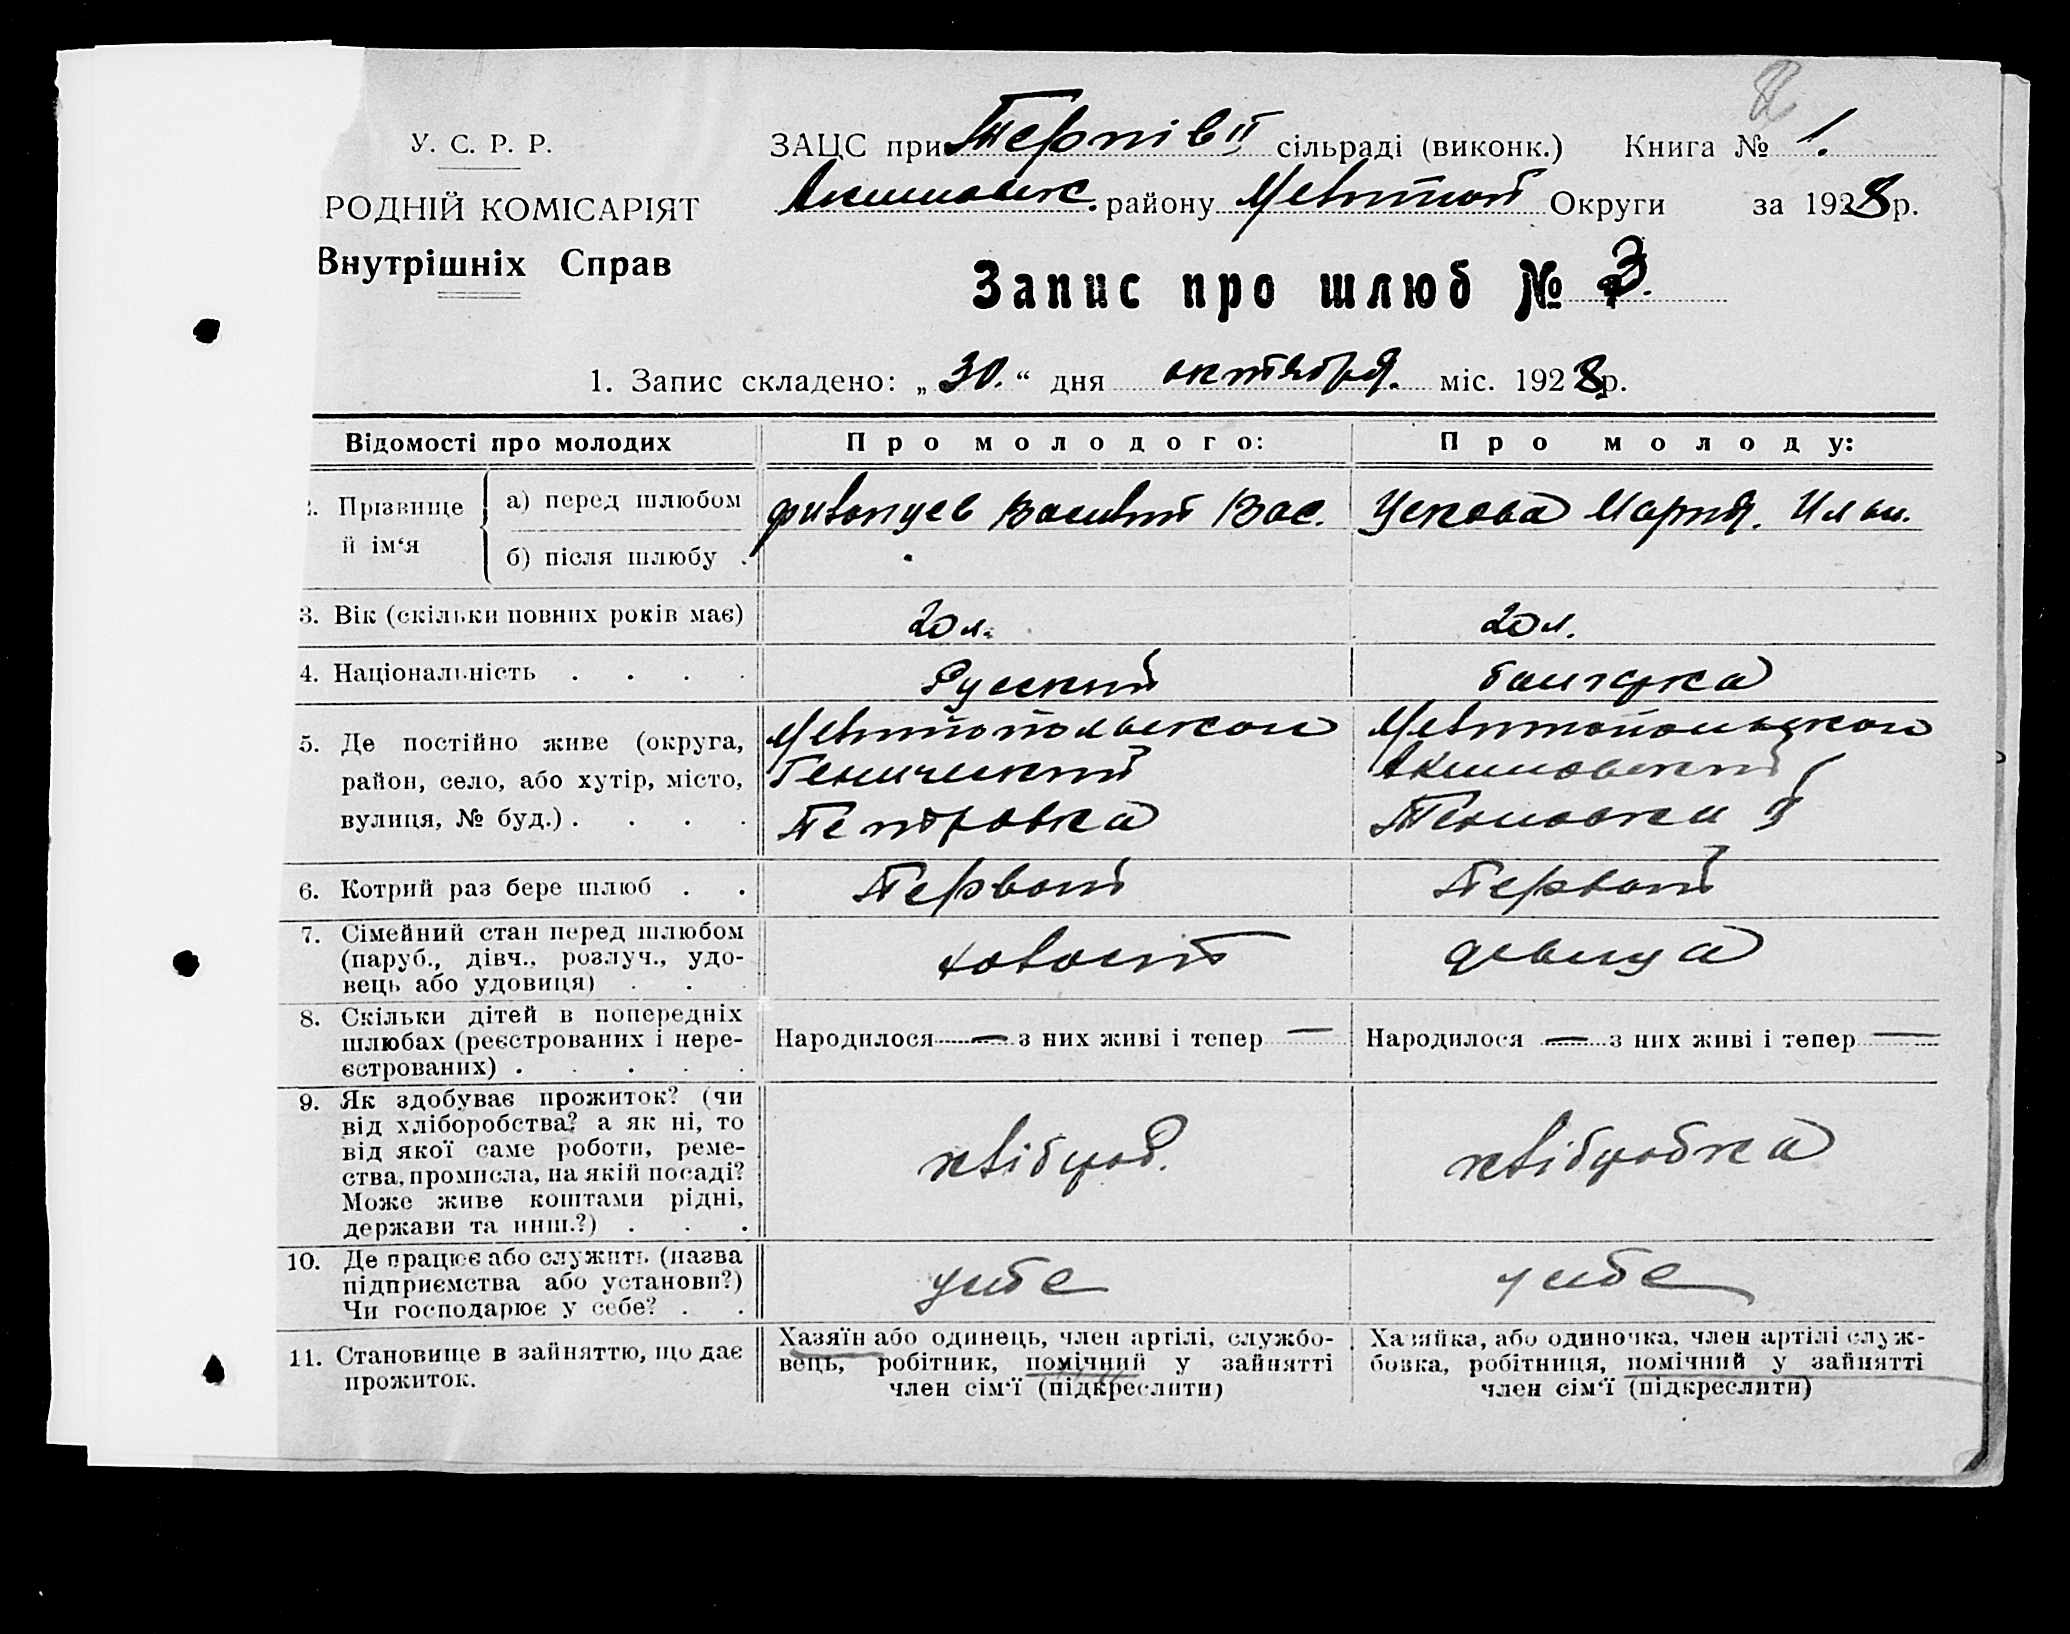 У. С. Р. Р.
РОДНІЙ КОМІСАРІЯТ
Внутрішніх Справ
ЗАЦС при Терпів II сільраді (виконк.) Книга № 1.
Якимовск. району Меліттоп Округи за 1928 р.
Запис про шлюб № 3.
1. Запис складено: „30.“ дня октября. міс. 1928 р.
Відомості про молодих
Про молодого:
Про молоду:
2. Прізвище й ім‘я
а) перед шлюбом
Василий Вас.
Ускова Мария. Ильи.
б) після шлюбу .
3. Вік (скільки повних років має)
20 л.
20 л.
4. Національність . . . .
Русский
болгарка
5. Де постійно живе (округа,
район, село, або хутір, місто,
вулиця, № буд.) . . . .
Мелитопольской
Генический
Петровка
Мелитопольской
Акимовский
6. Котрий раз бере шлюб . .
Первый
Первый
7. Сімейний стан перед шлюбом
(паруб., дівч., розлуч., удо-
вець або удовиця) . . .
холост
девица
8. Скільки дітей в попередніх
шлюбах (реєстрованих і нере-
єстрованих) . . . . .
Народилося — з них живі і тепер —
Народилося — з них живі і тепер —
9. Як здобуває прожиток? (чи
від хліборобства? а як ні, то
від якої саме роботи, реме-
ства, промисла, на якій посаді?
Може живе коштами рідні,
держави та инш.?) . . .
хлібороб.
хліборобка
10. Де працює або служить (назва
підприємства або установи?)
Чи господарює у себе? . .
у себе
у себе
11. Становище в зайняттю, що дає
прожиток.
Хазяїн або одинець, член артілі, службо-
вець, робітник, помічний у зайнятті
член сім‘ї (підкреслити)
Хазяйка, або одиночка, член артілі служ-
бовка, робітниця, помічний у зайнятті
член сім‘ї (підкреслити)